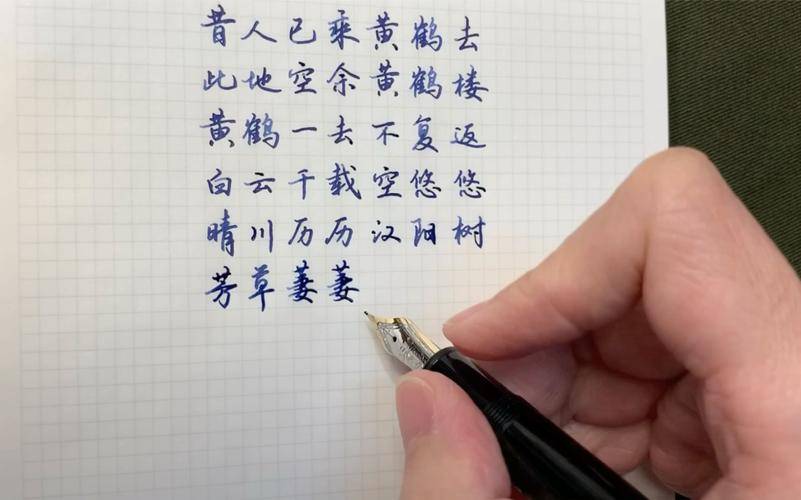 昔人已乘黄鹤去
此地空余黄鹤楼
黄鹤一去不复返
白云千载空悠悠
晴川历历汉阳树
芳草萋萋